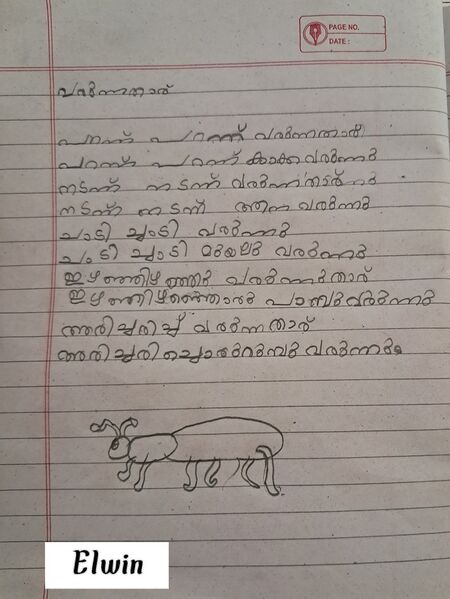 PAGE NO.
DATE :
വരുന്നതാര്
പറന്ന് പറന്ന് വരുന്നതാര്
പറന്ന് പറന്ന് കാക്ക വരുന്നു
നടന്ന് നടന്ന് വരുന്നതാര്
നടന്ന് നടന്ന് ആന വരുന്നു
ചാടി ച്ചാടി വരുന്നു
ചാടി ച്ചാടി മുയലു വരുന്നു
ഇഴഞ്ഞിഴഞ്ഞു വരുന്നുതാര്
ഇഴഞ്ഞിഴഞ്ഞൊരു പാമ്പുവരുന്നു
അരിച്ചരിച്ച് വരുന്നതാര്
അരിച്ചരിച്ചൊരുറുമ്പു വരുന്നു
Elwin